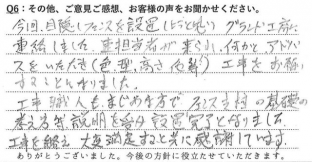 Q6：その他、ご意見ご感想、お客様の声をお聞かせください。
今回、目隠しフェンスを設置しようと思い グランド工房に
連絡しました。担当者が来られ、何かとアドバイ
スをいただき（色、高さ、色彩）工事をお願い
することになりました。
工事職人もまじめな方で フェンス支柱の基礎の
考え方など説明を受け設置完了となりました。
工事を終え 大変満足すると共に感謝しています。
ありがとうございました。今後の方針に役立たせていただきます。